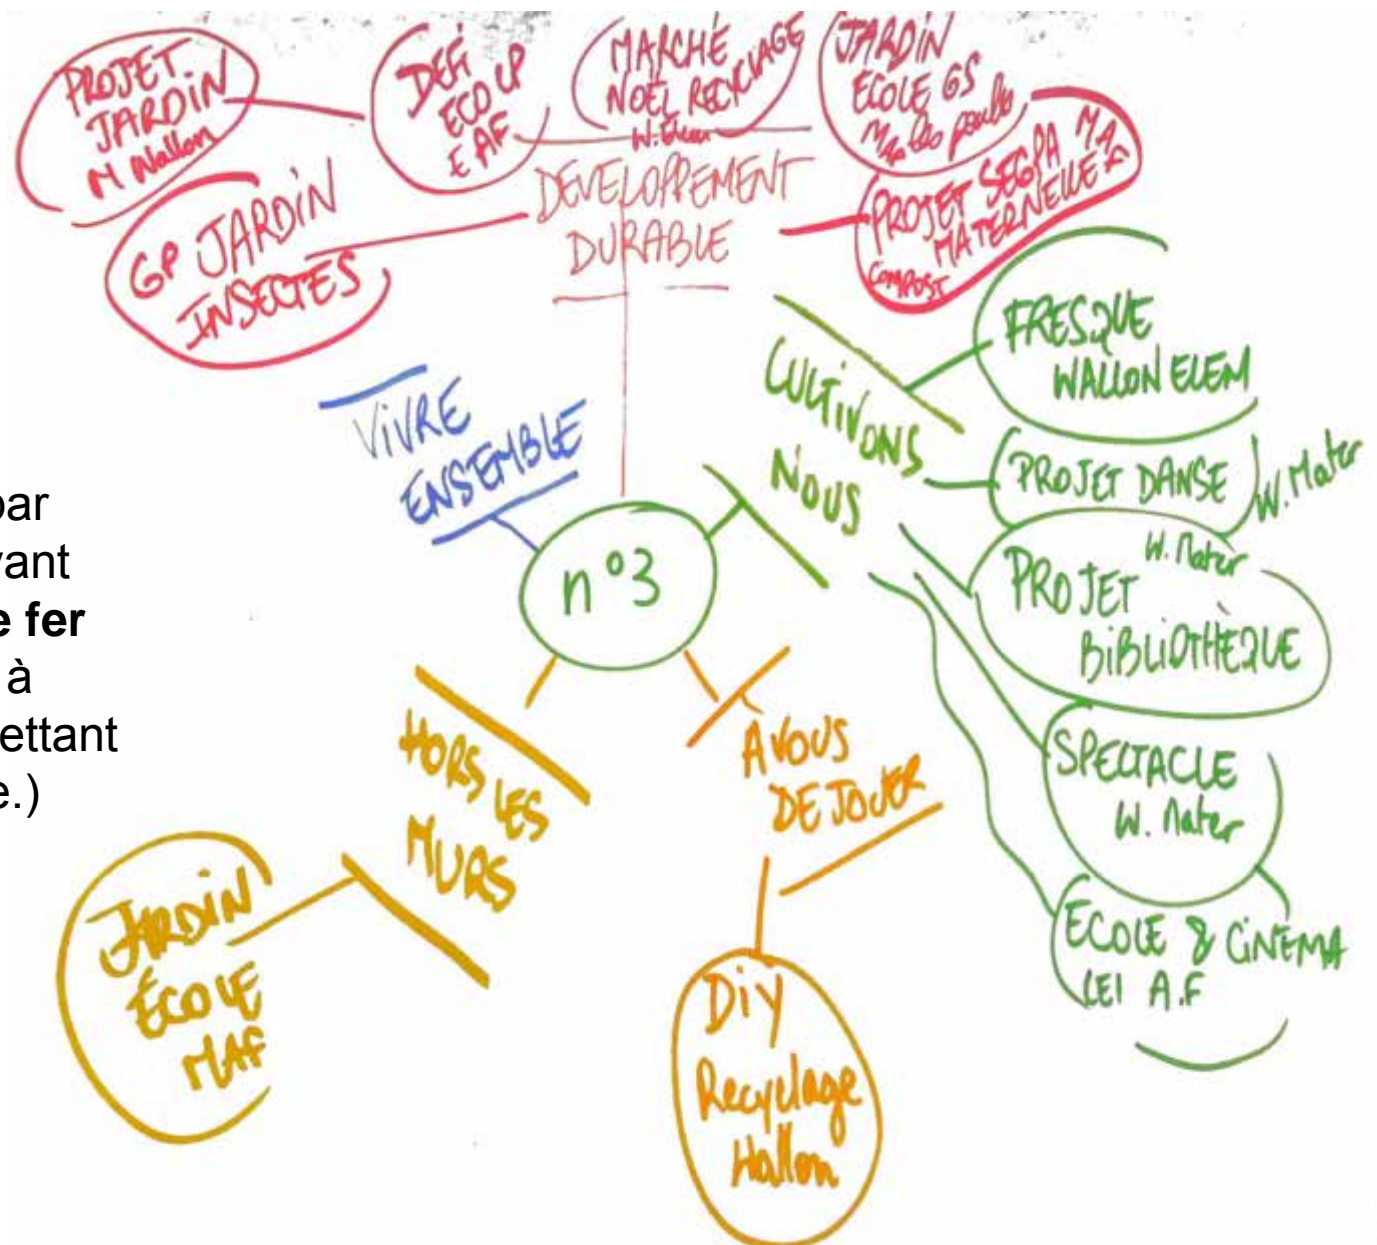 PROJET
JARDIN
M Wallon
DEFI
ECO LP
E AF
MARCHÉ
NOËL RECYCLAGE
W. Elem
JARDIN
ECOLE GS
GP JARDIN
INSECTES
DEVELOPPEMENT
DURABLE
PROJET SEGPA MA
MATERNELLE
COMPOST
VIVRE
ENSEMBLE
CULTIVONS
NOUS
FRESQUE
WALLON ELEM
PROJET DANSE
W. Mater
PROJET
W. Mater
BIBLIOTHÈQUE
SPECTACLE
W. Mater
ECOLE & CINÉMA
LEI A.F
n°3
par
vant
e fer
à
ettant
e.)
HORS LES
MURS
A VOUS
DE JOUER
JARDIN
ÉCOLE
MAF
DiY
Recyclage
Wallon